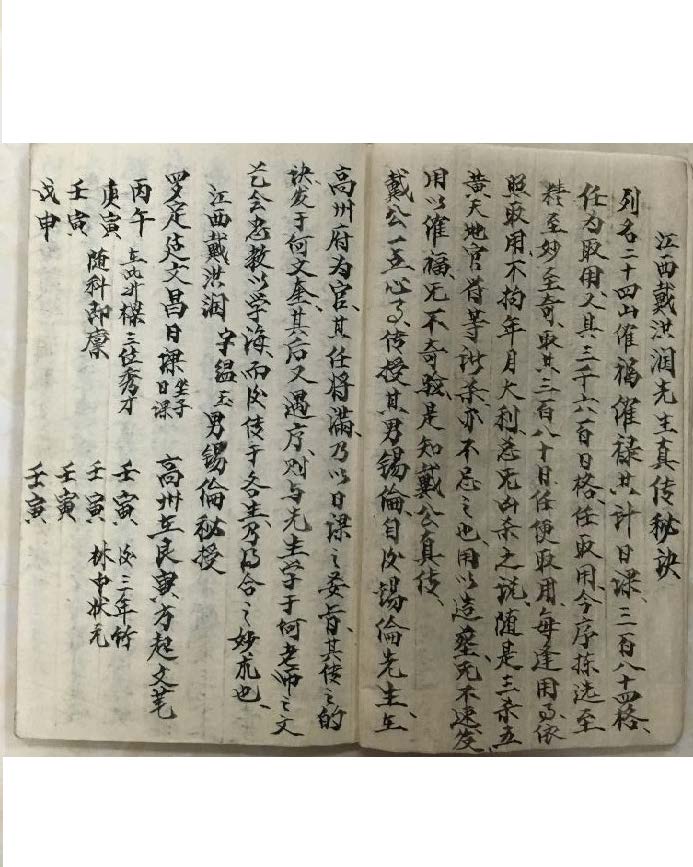 江西戴洪润先生真传秘诀
列名二十四山催福催禄共计日课、三百八十四格、
任为取用、又具三千六百日格、任取用今序拣选至
精至妙至奇、取其三百八十日任便取用、每逢用事、依
照取用、不拘年月大利、忌无凶杀之说、随是三杀五
黄天地官符等诸杀亦不忌之也、用以造葬、无不速发、
用以催福、无不奇验、是知戴公真传、
戴公一点心事、传授其男锡伦、自后锡伦先生、在
高州府为官、其任将满、乃以日课之妥旨、其传之的
诀发于何文奎、其后又遇序、则与先生学于何老师之文
艺会忠教以学海、而后传于各生、乃为合之妙朮也、
江西戴洪润 字緼玉 男锡伦秘授
罗定廷文昌日课 坐子日课 高州在艮寅方起文笔
丙午 三位秀才 壬寅 后三年竹
庚寅 随科即廪 壬寅 林中状元
壬寅 壬寅
戊申 壬寅